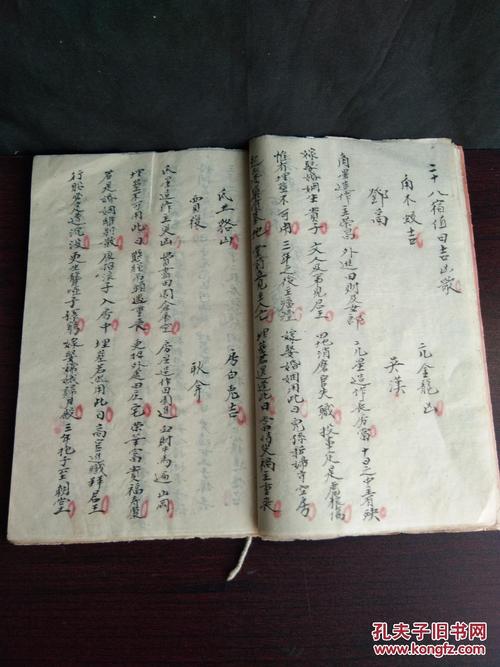 二十八宿值日吉凶歌
角木蛟吉 亢金龍凶
鄧禹 吳漢
角星造作主榮昌 外進田財及女郎 亢星造作長房當 十日之中主有殃
嫁娶婚姻生貴子 文人及第見君王 田地消磨官失職 投軍定是虎狼傷
惟有埋葬不可用 三年之後主瘟 嫁娶婚姻用此日 兒孫新婦守空房
堂前立見主人亡 埋葬若還逢此日 當時災禍主重喪
氐土貉凶 房日兔吉
賈復 耿弇
氐星造作主災凶 費盡田園倉庫空 房星造作田園進 血財牛馬遍山岡
埋葬不可用此日 懸繩吊頸禍重重 更招外處田庄宅 榮華富貴福壽康
若是婚姻離別散 夜招浪子入房中 埋葬若然用此日 高官進職拜君王
行船必定遭沉沒 更生聾啞子孫窮 嫁娶嫦娥歸月殿 三年抱子至朝堂
孔夫子旧书网
www.kongfz.com